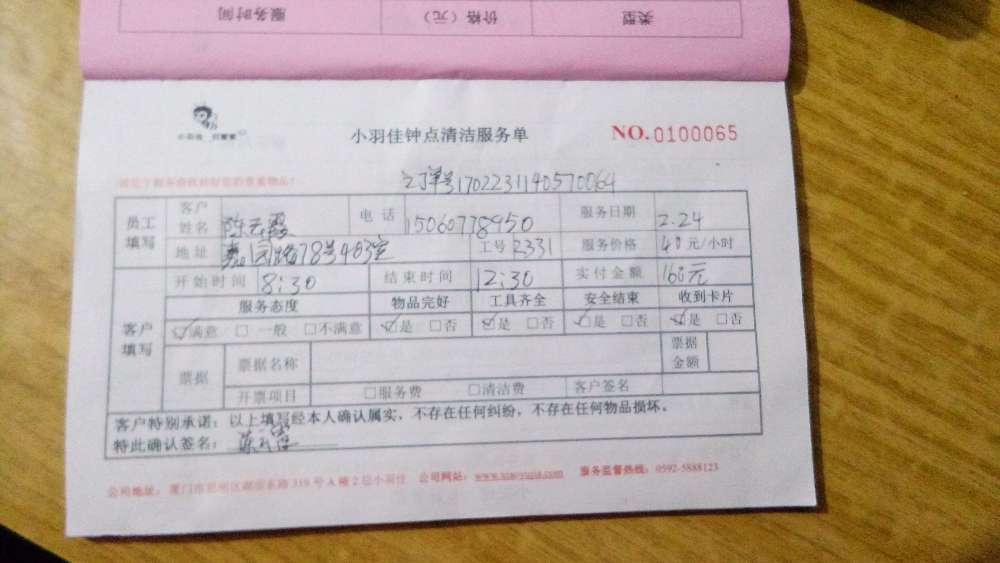 服务时间 价格（元） 类型
小羽佳
小羽佳钟点清洁服务单 NO.0100065
订单号1702231140570064
员工填写 客户姓名 陈云霞 电话 15060778950 服务日期 2.24
地址 嘉园路78号403室 工号 2331 服务价格 40元/小时
客户填写 开始时间 8:30 结束时间 12:30 实付金额 160元
服务态度 物品完好 工具齐全 安全结束 收到卡片
☑满意 □一般 □不满意 ☑是 □否 ☑是 □否 ☑是 □否 ☑是 □否
票据 票据名称 票据金额
开票项目 □服务费 □清洁费 客户签名
客户特别承诺：以上填写经本人确认属实，不存在任何纠纷，不存在任何物品损坏。
特此确认签名：陈云霞
公司地址：厦门市思明区湖滨东路319号A幢2层小羽佳 公司网站：www.xiaoyujia.com 服务监督热线：0592-5888123